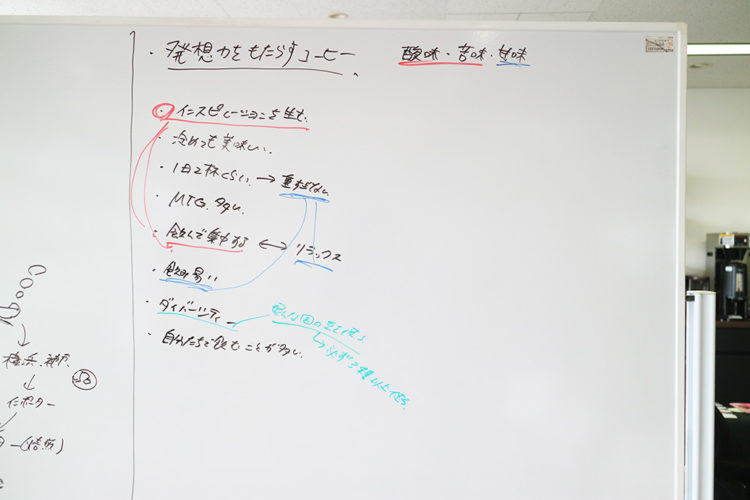 ・発想力をもたらすコーヒー
酸味・苦味・甘味
・インスピレーションを生む
・冷めても美味しい
・1日2杯くらい → 重すぎない
・MTG 多い
・飲んで集中する ↔ リラックス
・飲み易い
・ダイバーシティー
色んな国の豆を使う
↳ 必ず3種以上使う
・自分たちで飲むことが多い
↓
横浜、神戸
↓
インポーター
ー(焙煎)